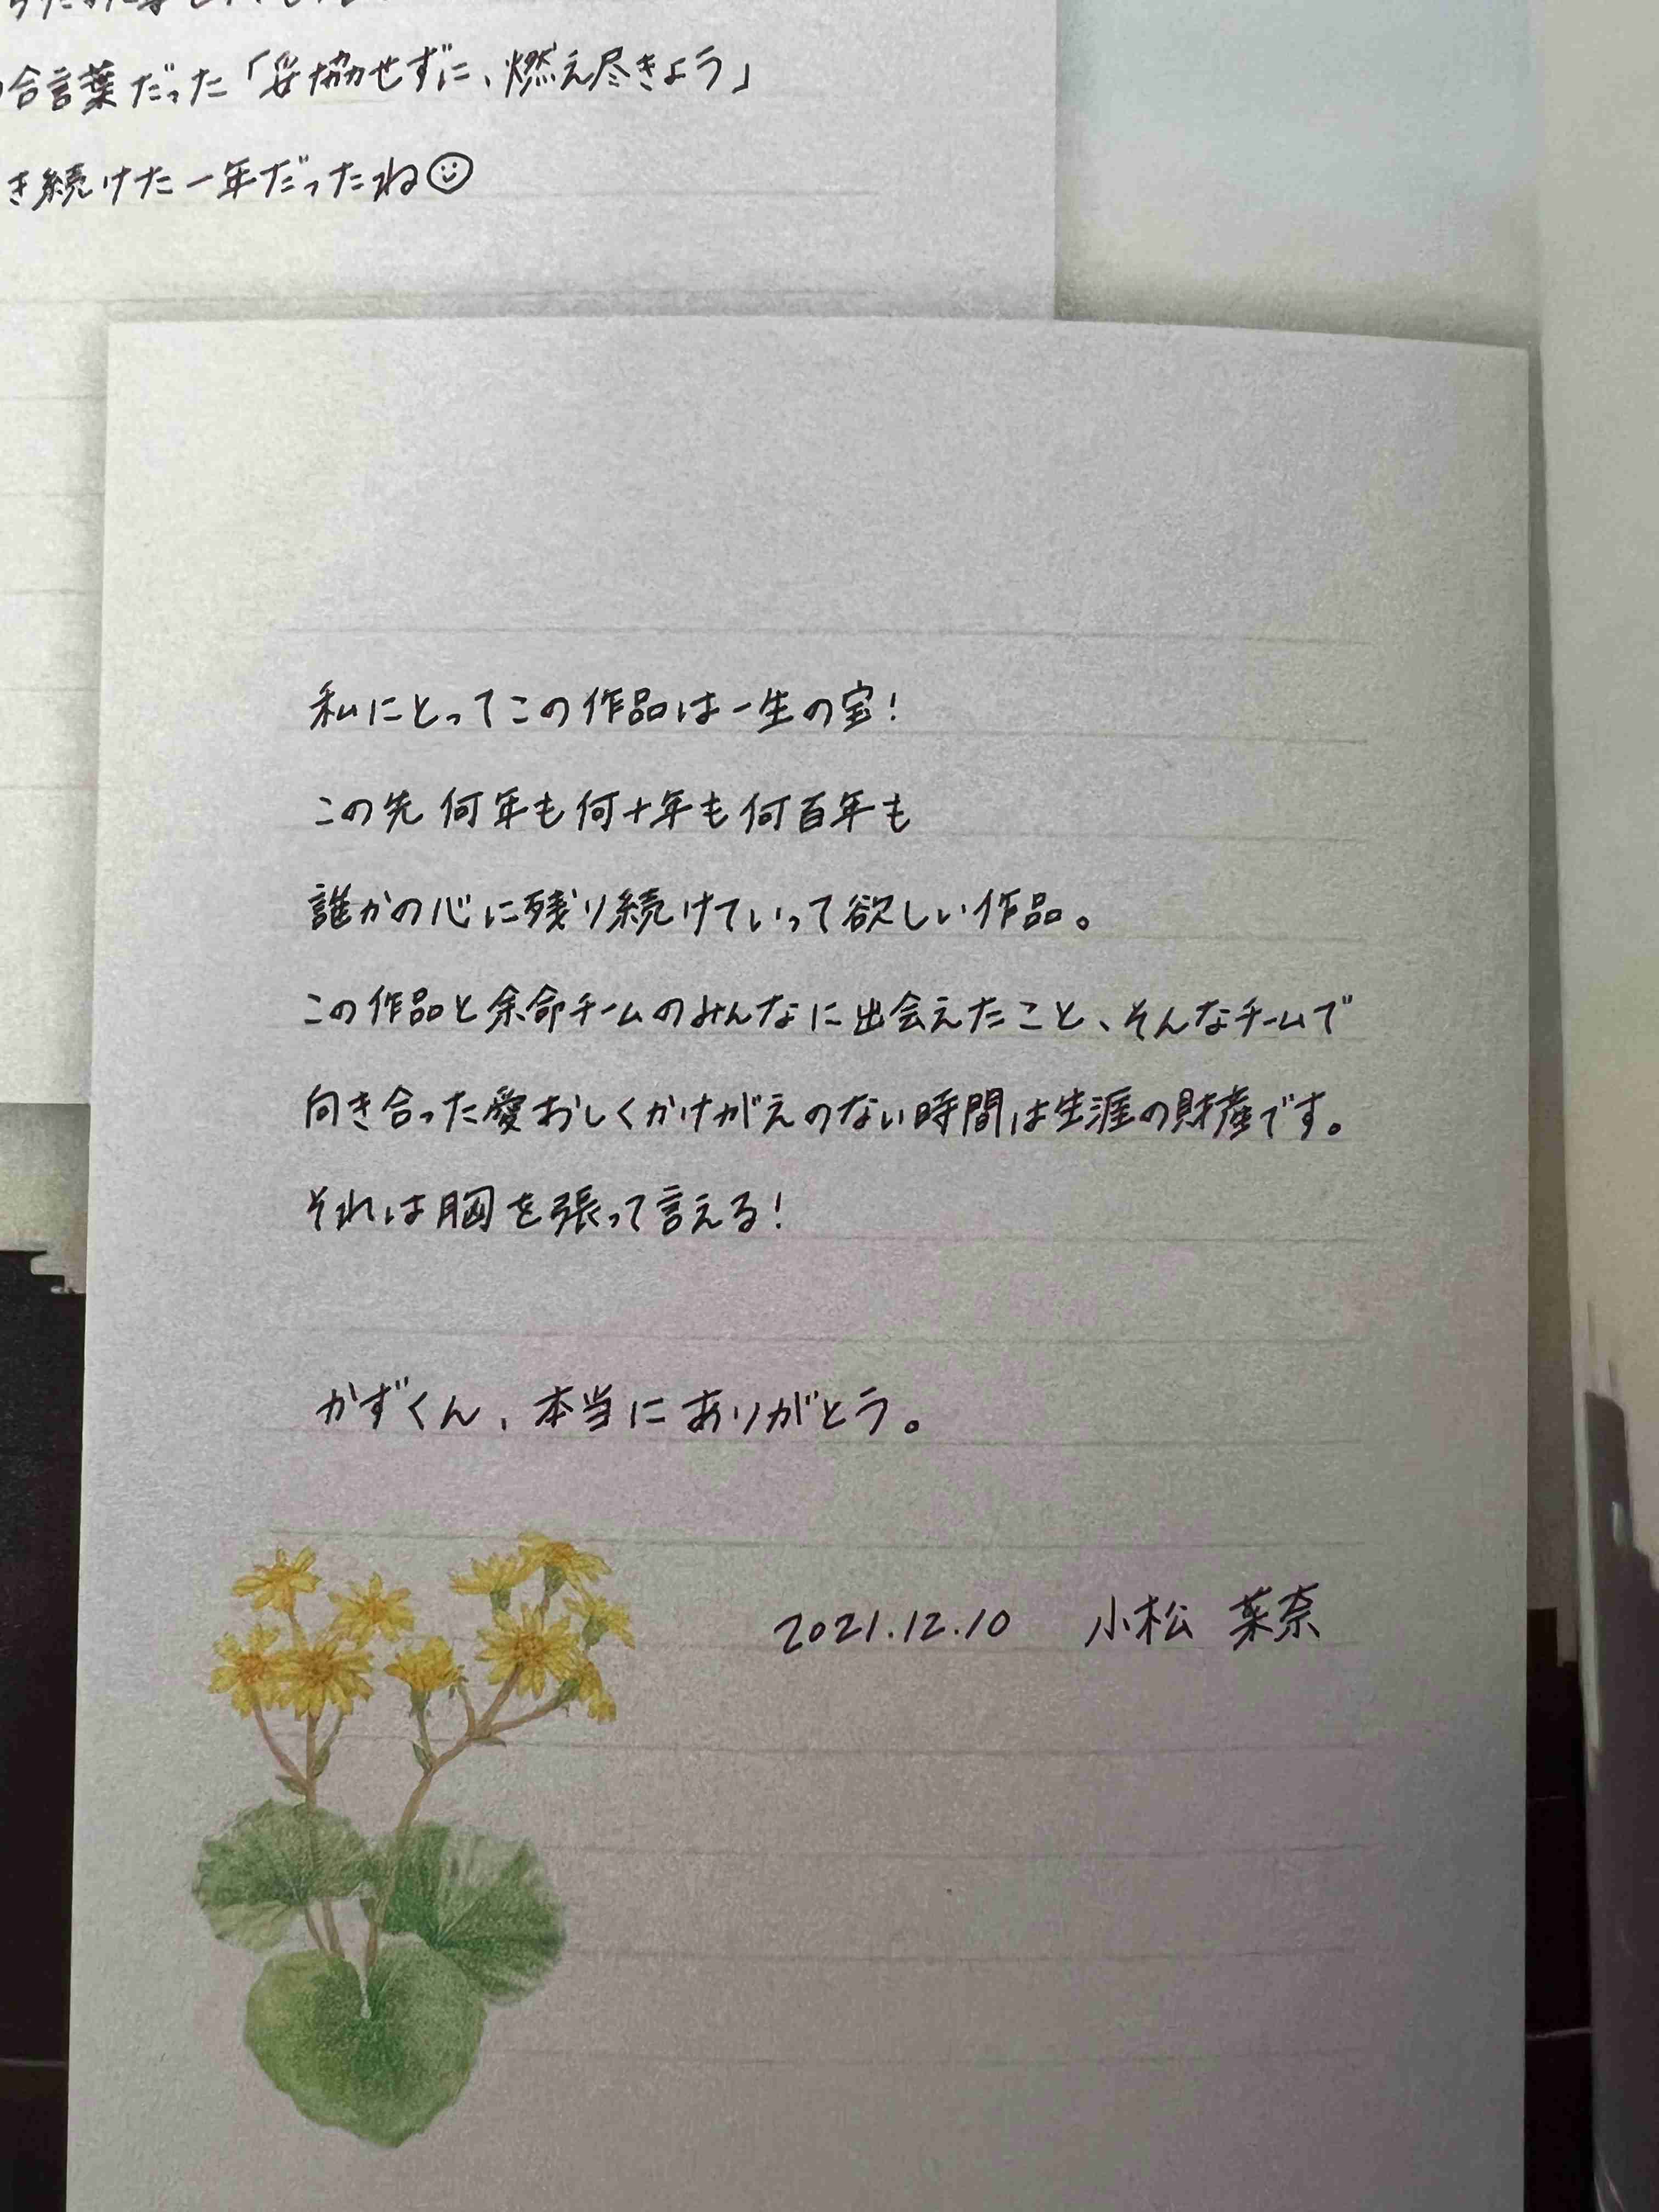 合言葉だった「妥協せずに、燃え尽きよう」
き続けた一年だったね
私にとってこの作品は一生の宝!
この先 何年も何十年も何百年も
誰かの心に残り続けていって欲しい作品。
この作品と余命チームのみんなに出会えたこと、そんなチームで
向き合った愛おしくかけがえのない時間は生涯の財産です。
それは胸を張って言える!
かずくん、本当にありがとう。
2021.12.10 小松 菜奈